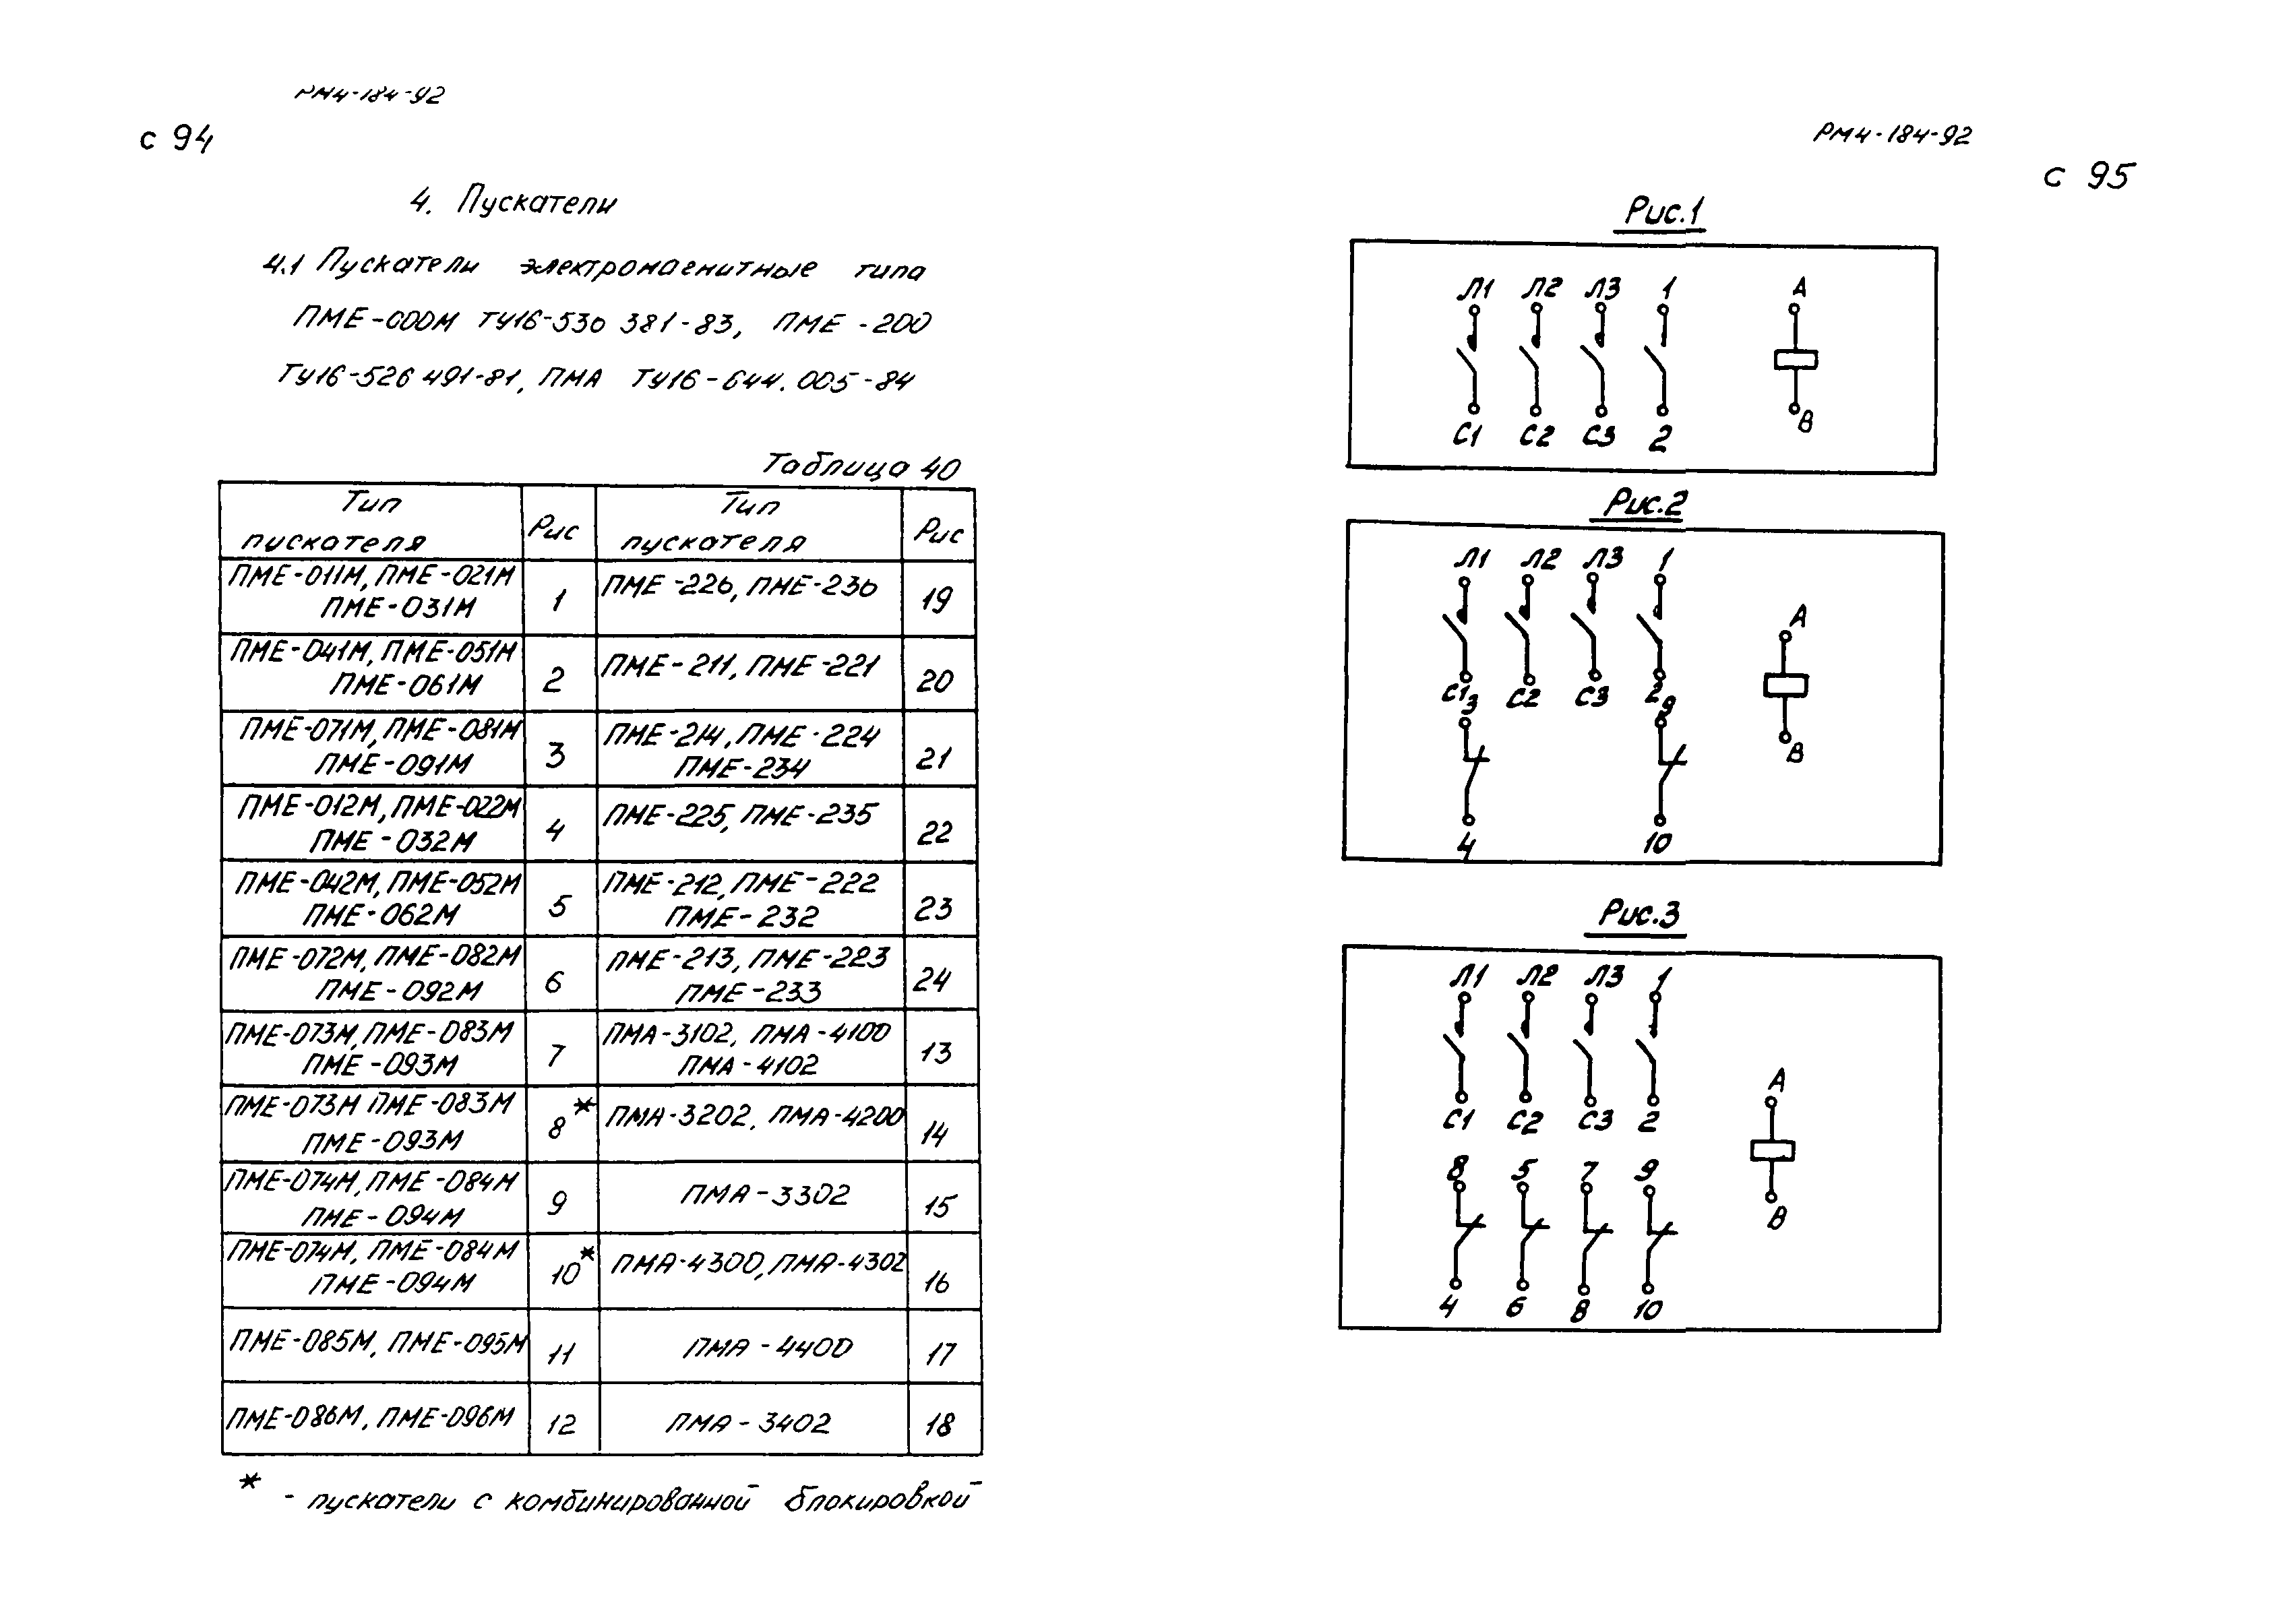 РМ4-184-92
с 94
4. Пускатели
4.1 Пускатели электромагнитные типа
ПМЕ-000М ТУ16-530 381-83, ПМЕ -200
ТУ16-526 491-81, ПМА ТУ16-644.005-84
Таблица 40
Тип пускателя Рис Тип пускателя Рис
ПМЕ-011М, ПМЕ-021М ПМЕ-031М 1 ПМЕ-226, ПМЕ-236 19
ПМЕ-041М, ПМЕ-051М ПМЕ-061М 2 ПМЕ-211, ПМЕ-221 20
ПМЕ-071М, ПМЕ-081М ПМЕ-091М 3 ПМЕ-214, ПМЕ-224 ПМЕ-234 21
ПМЕ-012М, ПМЕ-022М ПМЕ-032М 4 ПМЕ-225, ПМЕ-235 22
ПМЕ-042М, ПМЕ-052М ПМЕ-062М 5 ПМЕ-212, ПМЕ-222 ПМЕ-232 23
ПМЕ-072М, ПМЕ-082М ПМЕ-092М 6 ПМЕ-213, ПМЕ-223 ПМЕ-233 24
ПМЕ-073М, ПМЕ-083М ПМЕ-093М 7 ПМА-3102, ПМА-4100 ПМА-4102 13
ПМЕ-073М ПМЕ-083М ПМЕ-093М 8* ПМА-3202, ПМА-4200 14
ПМЕ-074М, ПМЕ-084М ПМЕ-094М 9 ПМА-3302 15
ПМЕ-074М, ПМЕ-084М ПМЕ-094М 10* ПМА-4300, ПМА-4302 16
ПМЕ-085М, ПМЕ-095М 11 ПМА-4400 17
ПМЕ-086М, ПМЕ-096М 12 ПМА-3402 18
* - пускатели с комбинированной блокировкой
РМ4-184-92
с 95
Рис.1
Л1 Л2 Л3 1 А
С1 С2 С3 2 В
Рис.2
Л1 Л2 Л3 1 А
С1 С2 С3 2
3 9 В
4 10
Рис.3
Л1 Л2 Л3 1
С1 С2 С3 2 А
8 5 7 9 В
4 6 8 10